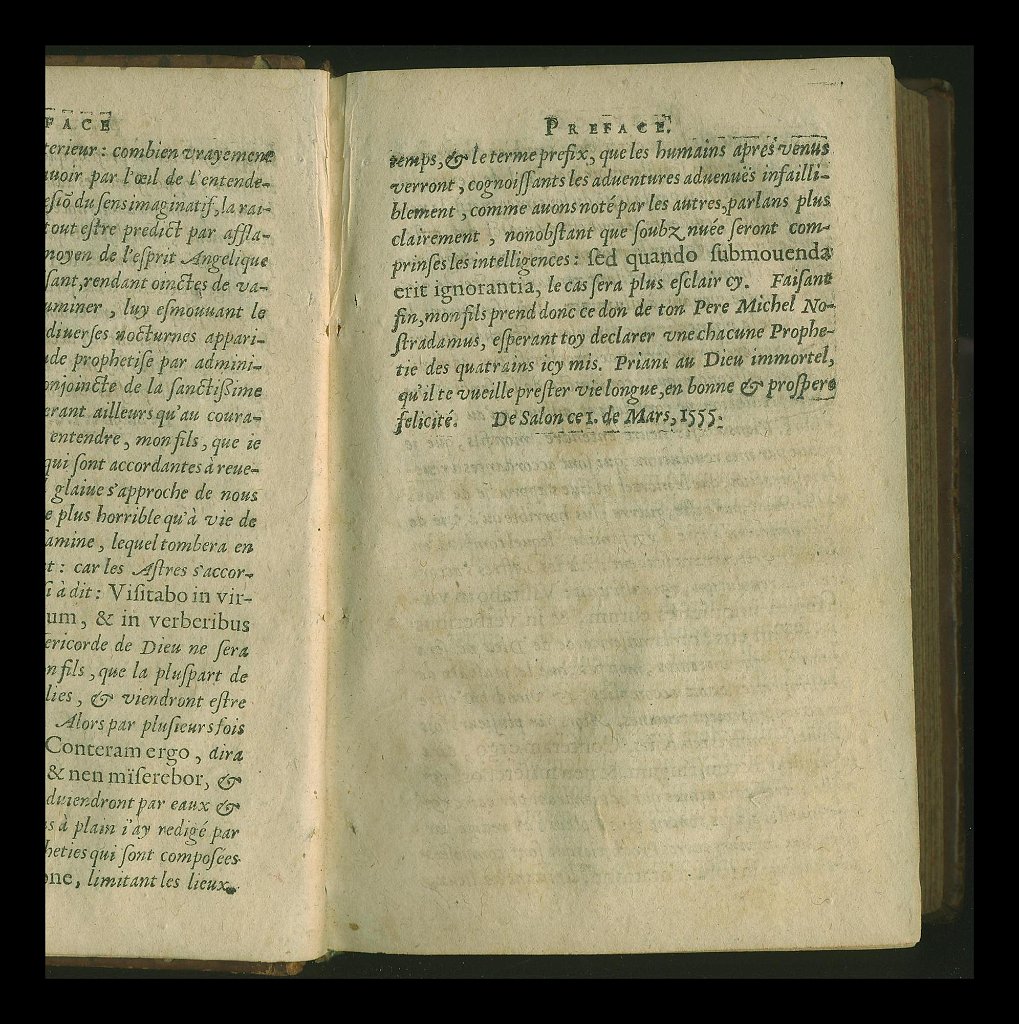 FACE
terieur : combien vrayement
auoir par l'œil de l'entende-
esiō du sens imaginatif, la rai-
tout estre predict par affla-
moyen de l'esprit Angelique
sant, rendant oinctes de va-
uminer, luy esmouuant le
diuerses nocturnes appari-
de prophetise par admini-
onjoincte de la sanctißime
erant ailleurs qu'au coura-
entendre, mon fils, que ie
qui sont accordantes à reue-
glaiue s'approche de nous
e plus horrible qu'à vie de
amine, lequel tombera en
t : car les Astres s'accor-
si à dit : Visitabo in vir-
um, & in verberibus
ericorde de Dieu ne sera
n fils, que la pluspart de
lies, & viendront estre
Alors par plusieurs fois
Conteram ergo, dira
& nen miserebor, &
duiendront par eaux &
s à plain i'ay redigé par
heties qui sont composées
one, limitant les lieux,
PREFACE.
temps, & le terme prefix, que les humains apres venus
verront, cognoissants les aduentures aduenuës infailli-
blement, comme auons noté par les autres, parlans plus
clairement, nonobstant que soubz nuée seront com-
prinses les intelligences : sed quando submouenda
erit ignorantia, le cas sera plus esclaircy. Faisant
fin, mon fils prend donc ce don de ton Pere Michel No-
stradamus, esperant toy declarer vne chacune Prophe-
tie des quatrains icy mis. Priant au Dieu immortel,
qu'il te vueille prester vie longue, en bonne & prospere
felicité. De Salon ce 1. de Mars, 1555.